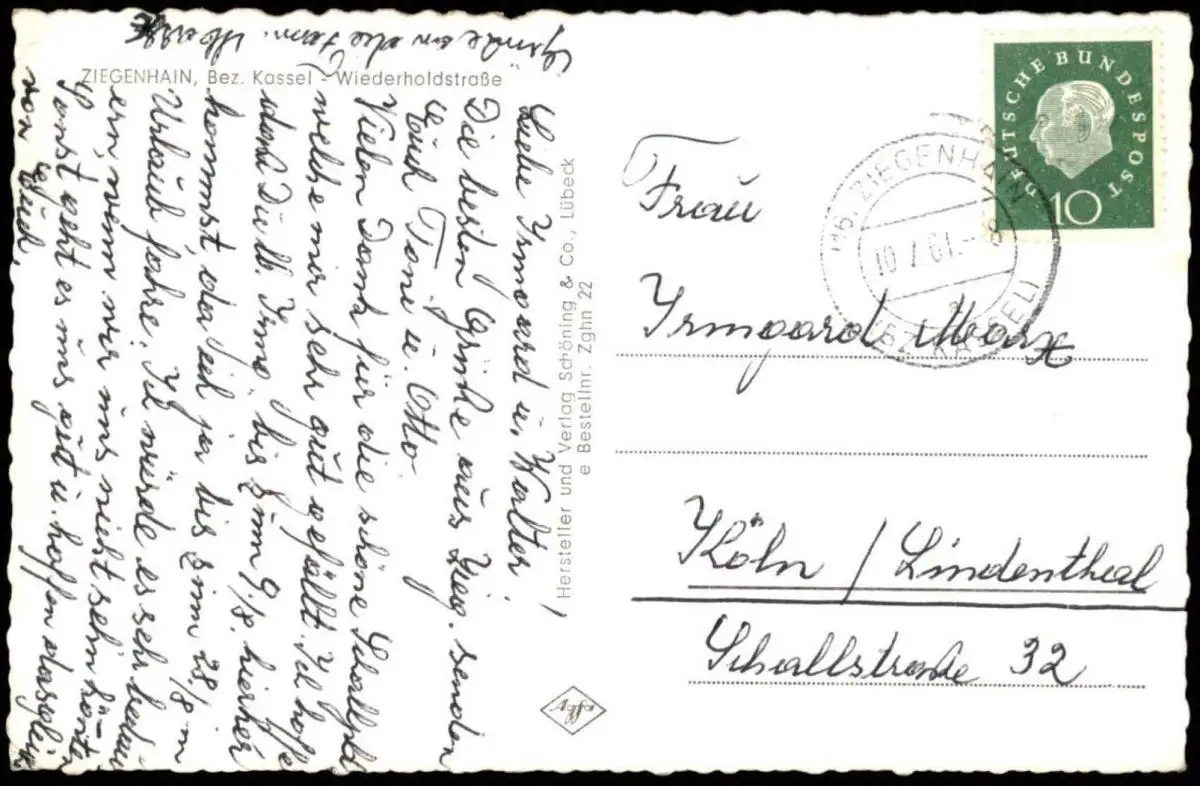 ZIEGENHAIN, Bez. Kassel - Wiederholdstraße
Liebe Irmgard u. Walter!
Die besten Grüße aus Zieg. senden
Euch Toni u. Otto.
Vielen Dank für die schöne Schallpl.
welche mir sehr gut gefällt. Ich hoffe
daß Du lb. Irmg. bis zum 9./8. hierher
kommst, da ich ja bis zum 28./8 in
Urlaub fahre. Ich würde es sehr bedau
ern, wenn wir uns nicht sehn könn-
ten
Sonst geht es uns gut u. hoffen dasgleiche
von Euch.
Grüße an die Fam.
Hersteller und Verlag Schöning & Co., Lübeck
e Bestellnr. Zghn 22
DEUTSCHE BUNDESPOST
10
ZIEGENHAIN
10.7.61.-8
(BZ KASSEL)
Frau
Irmgard Marx
Köln / Lindenthal
Schallstraße 32